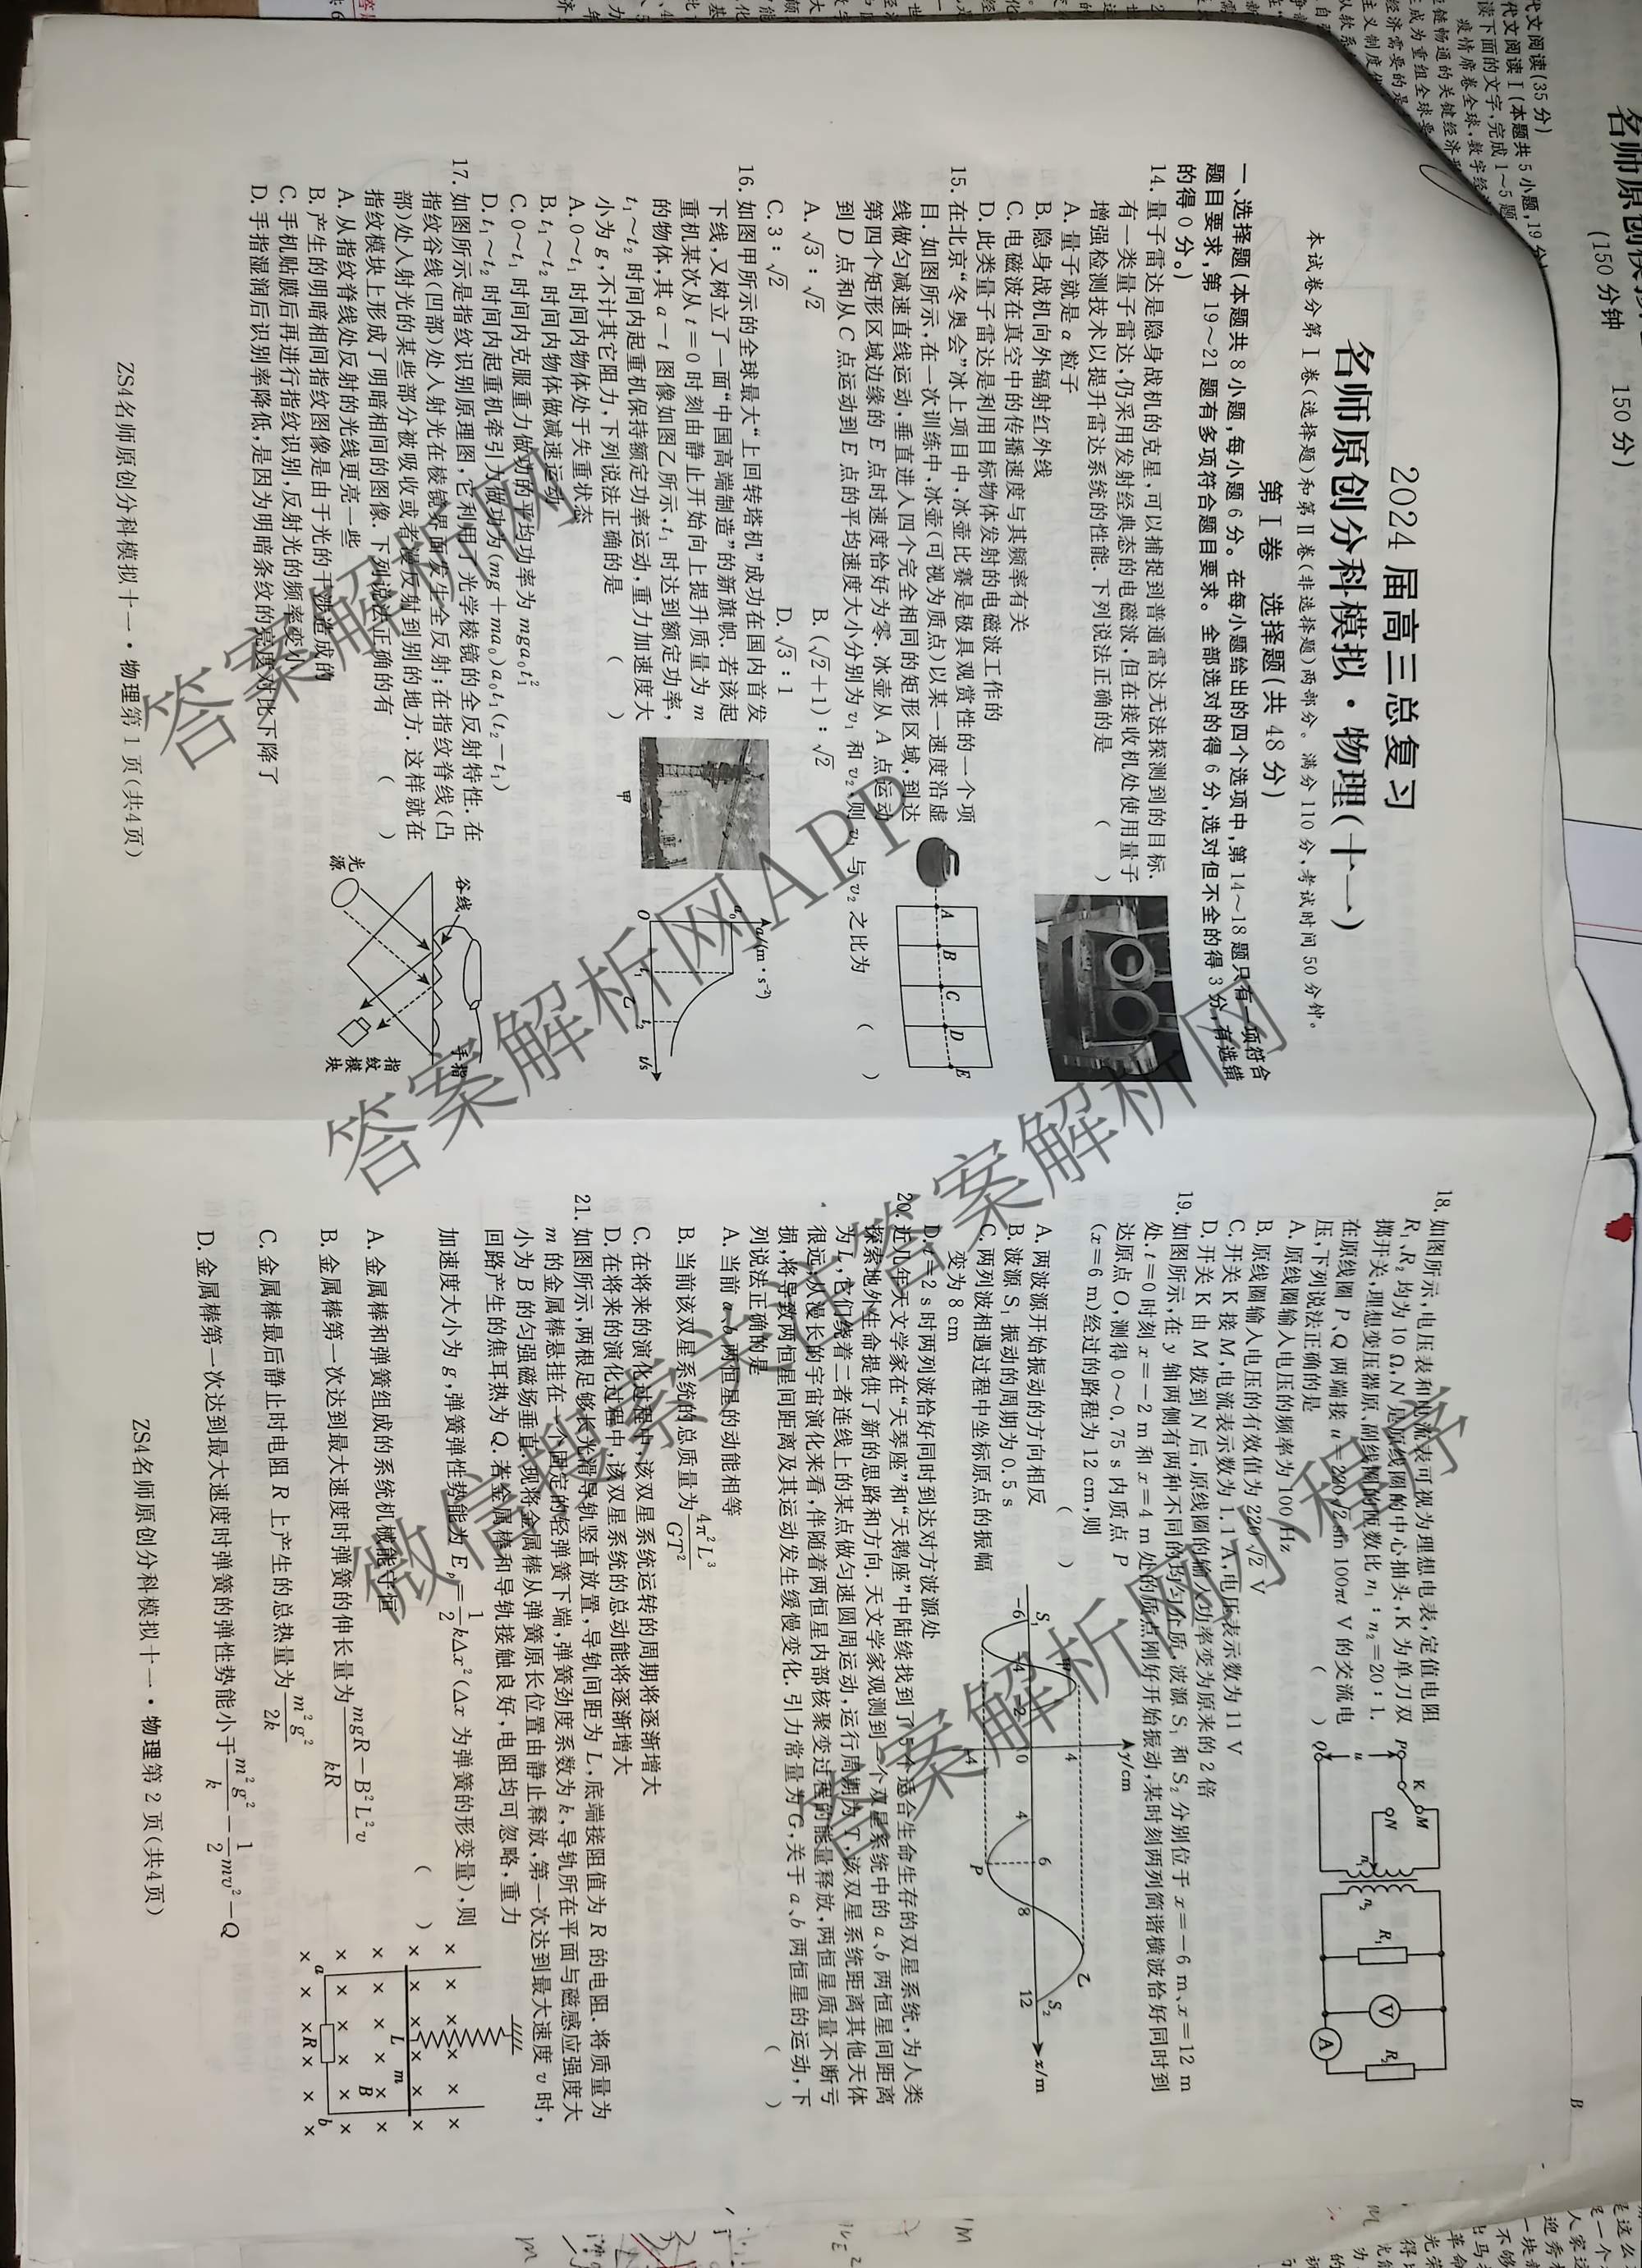 2024 届高三总复习
名师原创分科模拟·物理(十一)
本试卷分第Ⅰ卷(选择题)和第Ⅱ卷(非选择题)两部分。满分110分,考试时间50分钟。
第Ⅰ卷 选择题(共48分)
一、选择题(本题共8小题,每小题6分。在每小题给出的四个选项中,第14~18题只有一项符合
题目要求,第19~21题有多项符合题目要求。全部选对的得6分,选对但不全的得3分,有选错
的得0分。)
14. 量子雷达是隐身战机的克星,可以捕捉到普通雷达无法探测到的目标.
有一类量子雷达,仍采用发射经典态的电磁波,但在接收机处使用量子
增强检测技术以提升雷达系统的性能.下列说法正确的是 ( )
A. 量子就是α粒子
B. 隐身战机向外辐射红外线
C. 电磁波在真空中的传播速度与其频率有关
D. 此类量子雷达是利用目标物体发射的电磁波工作的
15. 在北京“冬奥会”冰上项目中,冰壶比赛是极具观赏性的一个项
目.如图所示,在一次训练中,冰壶(可视为质点)以某一速度沿虚
线做匀减速直线运动,垂直进入四个完全相同的矩形区域,到达
第四个矩形区域边缘的E点时速度恰好为零.冰壶从A点运动
到D点和从C点运动到E点的平均速度大小分别为v₁和v₂,则v₁与v₂之比为 ( )
A. √3 : √2
B. (√2+1) : √2
C. 3 : √2
D. √3 : 1
A
B
C
D
E
16. 如图甲所示的全球最大“上回转塔机”成功在国内首发
下线,又树立了一面“中国高端制造”的新旗帜.若该起
重机某次从t=0时刻由静止开始向上提升质量为m
的物体,其a-t图像如图乙所示,t₁时达到额定功率,
t₁~t₂时间内起重机保持额定功率运动,重力加速度大
小为g,不计其它阻力,下列说法正确的是 ( )
A. 0~t₁时间内物体处于失重状态
B. t₁~t₂时间内物体做减速运动
C. 0~t₁时间内克服重力做功的平均功率为mga₀t₁²
D. t₁~t₂时间内起重机牵引力做功为(mg+ma₀)a₀t₁(t₂-t₁)
甲
a/(m·s⁻²)
a₀
O
t₁
t₂
t/s
乙
17. 如图所示是指纹识别原理图,它利用了光学棱镜的全反射特性.在
指纹谷线(凹部)处入射光在棱镜界面发生全反射;在指纹脊线(凸
部)处入射光的某些部分被吸收或者漫反射到别的地方.这样就在
指纹模块上形成了明暗相间的图像.下列说法正确的有 ( )
A. 从指纹脊线处反射的光线更亮一些
B. 产生的明暗相间指纹图像是由于光的干涉造成的
C. 手机贴膜后再进行指纹识别,反射光的频率变小
D. 手指湿润后识别率降低,是因为明暗条纹的亮度对比下降了
谷线
手指
光源
指纹模块
ZS4名师原创分科模拟十一·物理第1页(共4页)
18. 如图所示,电压表和电流表可视为理想电表,定值电阻
R₁、R₂均为10 Ω,N是原线圈的中心抽头,K为单刀双
掷开关,理想变压器原、副线圈的匝数比n₁:n₂=20:1.
压,下列说法正确的是 ( )
A. 原线圈输入电压的频率为100 Hz
B. 原线圈输入电压的有效值为220√2 V
C. 开关K接M,电流表示数为1.1 A,电压表示数为11 V
D. 开关K由M拨到N后,原线圈的输入功率变为原来的2倍
P
Q
u
K
M
N
n₁
n₂
R₁
V
A
R₂
19. 如图所示,在y轴两侧有两种不同的均匀介质,波源S₁和S₂分别位于x=-6 m、x=12 m
处.t=0时刻x=-2 m和x=4 m处的质点刚好开始振动,某时刻两列简谐横波恰好同时到
达原点O,测得0~0.75 s内质点P
(x=6 m)经过的路程为12 cm,则
( )
A. 两波源开始振动的方向相反
B. 波源S₁振动的周期为0.5 s
C. 两列波相遇过程中坐标原点的振幅
变为8 cm
D. t=2 s时两列波恰好同时到达对方波源处
y/cm
x/m
S₁
S₂
甲
乙
P
-6
-4
-2
0
4
6
8
12
4
-4
20. 近几年天文学家在“天琴座”和“天鹅座”中陆续找到了5个适合生命生存的双星系统,为人类
探索地外生命提供了新的思路和方向.天文学家观测到一个双星系统中的a、b两恒星间距离
为L,它们绕着二者连线上的某点做匀速圆周运动,运行周期为T,该双星系统距离其他天体
很远,从漫长的宇宙演化来看,伴随着两恒星内部核聚变过程的能量释放,两恒星质量不断亏
损,将导致两恒星间距离及其运动发生缓慢变化.引力常量为G,关于a、b两恒星的运动,下
列说法正确的是 ( )
A. 当前a、b两恒星的动能相等
B. 当前该双星系统的总质量为4π²L³/GT²
C. 在将来的演化过程中,该双星系统运转的周期将逐渐增大
D. 在将来的演化过程中,该双星系统的总动能将逐渐增大
21. 如图所示,两根足够长光滑导轨竖直放置,导轨间距为L,底端接阻值为R的电阻.将质量为
m的金属棒悬挂在一个固定的轻弹簧下端,弹簧劲度系数为k,导轨所在平面与磁感应强度大
小为B的匀强磁场垂直.现将金属棒从弹簧原长位置由静止释放,第一次达到最大速度v时,
回路产生的焦耳热为Q.若金属棒和导轨接触良好,电阻均可忽略,重力
加速度大小为g,弹簧弹性势能为Eₚ=1/2kΔx²(Δx为弹簧的形变量),则
( )
A. 金属棒和弹簧组成的系统机械能守恒
B. 金属棒第一次达到最大速度时弹簧的伸长量为(mgR-B²L²v)/kR
C. 金属棒最后静止时电阻R上产生的总热量为m²g²/2k
D. 金属棒第一次达到最大速度时弹簧的弹性势能小于m²g²/k-1/2mv²-Q
L
m
B
a
R
b
ZS4名师原创分科模拟十一·物理第2页(共4页)
答案解析网
答案解析网APP
微信搜索关注答案解析网
答案解析网小程序
(150分钟
150分)
代文阅读(35分)
代文阅读Ⅰ(本题共5小题,19分)
读下面的文字,完成1~5题